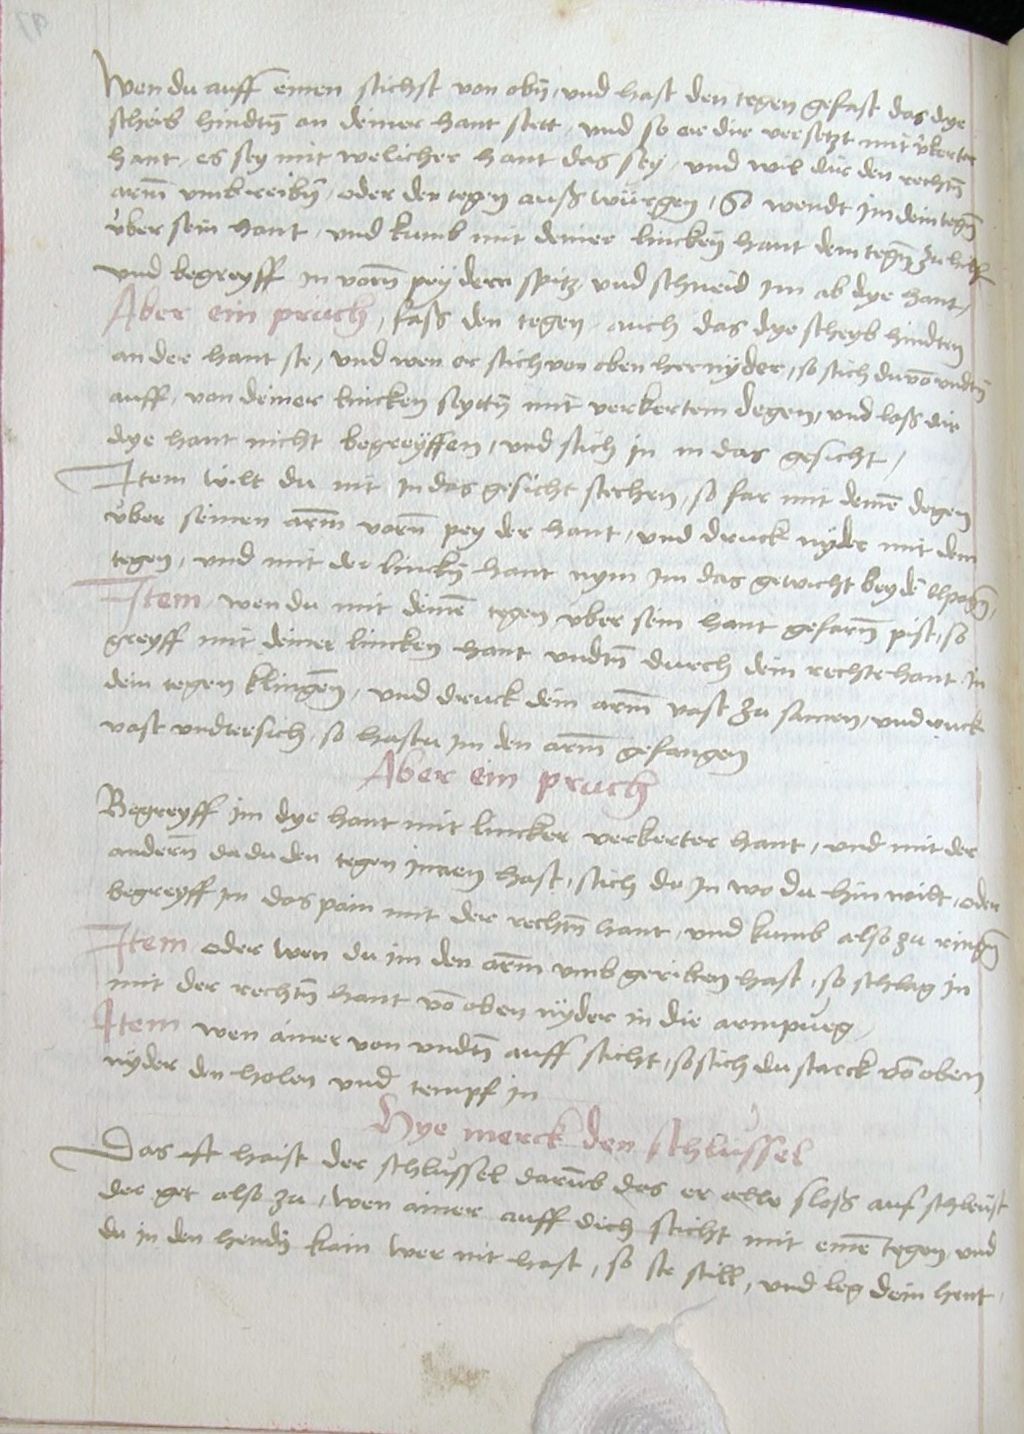 Wen du auff einen stichst von obñ, vnd hast den tegen gefast das dye
scheib hindtñ an deiner hant stett, vnd so er dir versetzt mit v̈berter
hant, es sey mit welicher hant das sey, vnd wil dir den rechtñ
arm̄ vmbreibñ, oder den tegen auß würgen, So wendt im dein tegñ
v̈ber sein hant, vnd kumb mit deiner lincken hant dem tegñ zu hilff
vnd begreyff in vorñ pey dem spitz, vnd schneid im ab dye hant,
Aber ein pruch, fass den tegen, auch das dye scheyb hindten
an der hant ste, vnd wen er stich von oben hernyder, so stich du vō vndtñ
auff, von deiner lincken seyttñ mit verkertem degen, vnd loss dir
dye hant nicht begreyffen, vnd stich in in das gesicht,
Item wilt du nit in das gesicht stechen, so far mit deinē degen
v̈ber seinen arm̄ vorñ pey der hant, vnd druck nyder mit dem
tegen, vnd mit der linckñ hant nym im das gewicht bey dē elpogñ,
Item, wen du mit deinē tegen v̈ber sein hant gefarñ pist, so
greyff mit deiner lincken hant vndtñ durch dein rechte hant in
dein tegen klingeñ, vnd druck dein arm̄ vast zu samen, vnd ruck
vast vndtersich, so hastu im den arm̄ gefangen
Aber ein pruch
Begreyff im dye hant mit lincker verkerter hant, vnd mit der
anderñ da du den tegen innen hast, stich du in wo du hin wilt, oder
begreyff im das pain mit der rechtñ hant, vnd kumb also zu ringñ
Item oder wen du im den arm̄ vmb geriben hast, so schlag in
mit der rechtñ hant vō oben nyder in die armpüeg,
Item wen ainer von vndtñ auff sticht, so stich du starck vō oben
nyder den holen vnd tempf in
Hye merck den schlüssel
Das ist haist der schlüssel darūb das er alle sloß auf schleüst
der get also zu, wen ainer auff dich sticht mit einē tegen, vnd
du in den hendñ kain wer nit hast, so ste still, vnd leg dein hent,